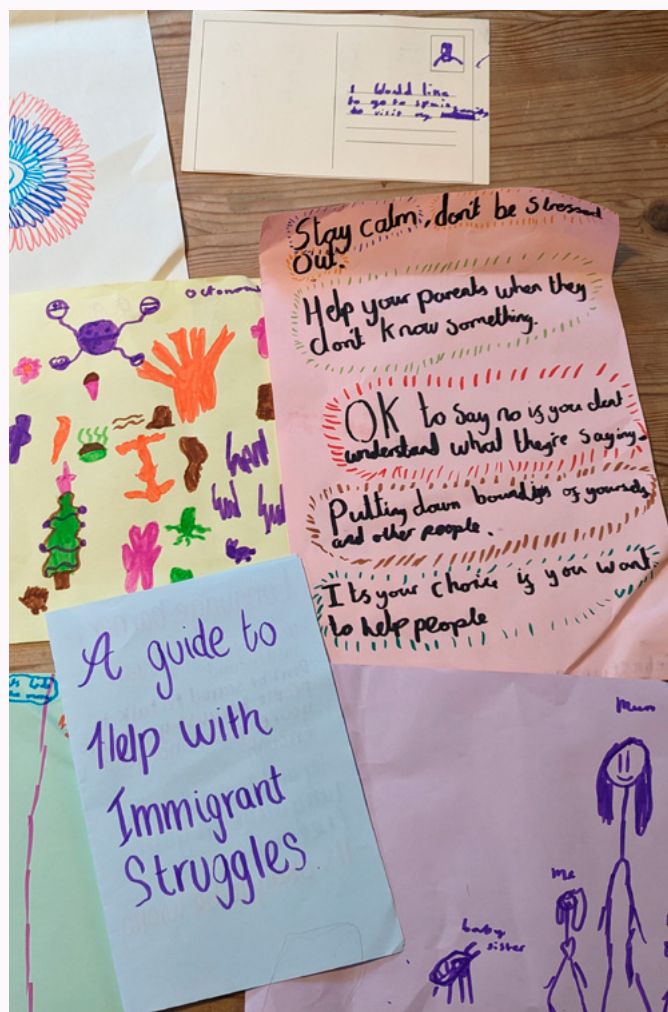 I would like
to go to spain
to visit my
Stay calm, don't be stressed
out.
Help your parents when they
don't know something.
OK to say no is you dont
understand what they're saying.
Putting down of yourself
and other people.
Its your choice is you want
to help people
A guide to
Help with
Immigrant
Struggles
Mum
Me
baby
sister